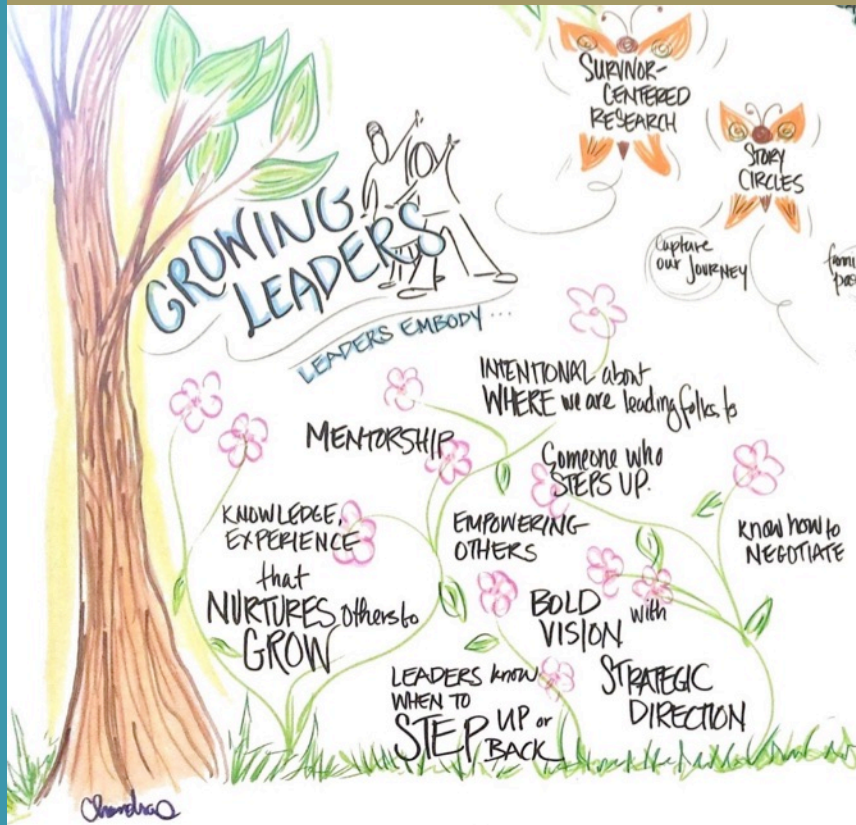 SURVIVOR-
CENTERED
RESEARCH
STORY
CIRCLES
Capture
our JOURNEY
GROWING
LEADERS
LEADERS EMBODY ...
INTENTIONAL about
WHERE we are leading folks to
MENTORSHIP
Someone who
STEPS UP.
KNOWLEDGE,
EXPERIENCE
that
NURTURES others to
GROW
EMPOWERING
OTHERS
know how to
NEGOTIATE
BOLD
VISION with
STRATEGIC
DIRECTION
LEADERS know
WHEN TO
STEP UP or
BACK